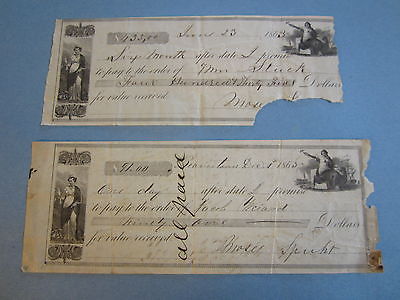 $ 435.00 June 23 1863
Six month after date I promise
to pay to the order of Wm Stuck
Four Hundred Thirty Five Dollars
for value received
Moses
$ 91.00 Dec 1st 1863
One day after date I promise
to pay to the order of Jacob
Ninety one Dollars
for value received
Moses Specht
all paid